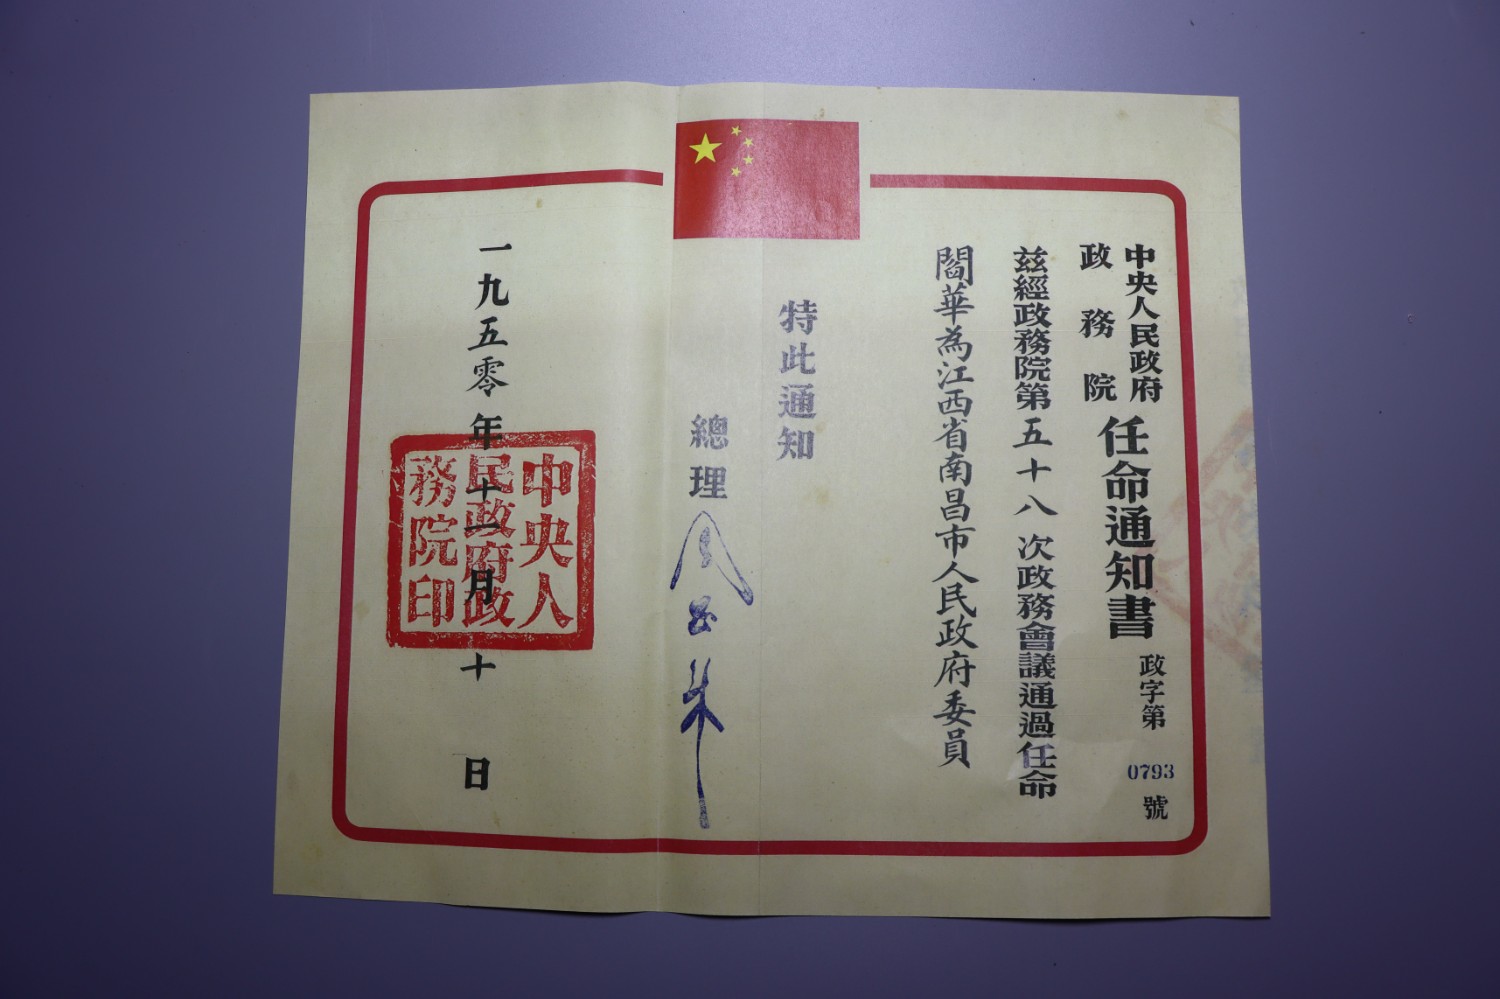 中央人民政府
政務院
任命通知書
政字第0793號
茲經政務院第五十八次政務會議通過任命
閻華為江西省南昌市人民政府委員
特此通知
總理 周恩來
一九五零年十一月十日
中央人
民政府政
務院印